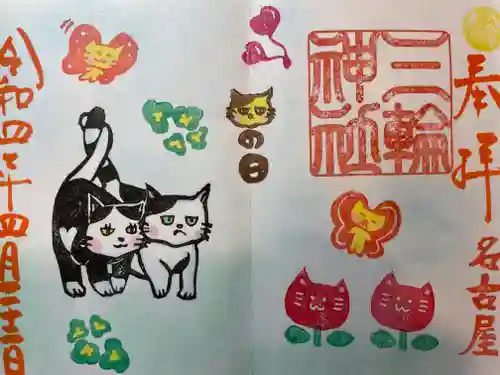 奉拝
名古屋
三輪
神社
の日
令和四年四月二十二日